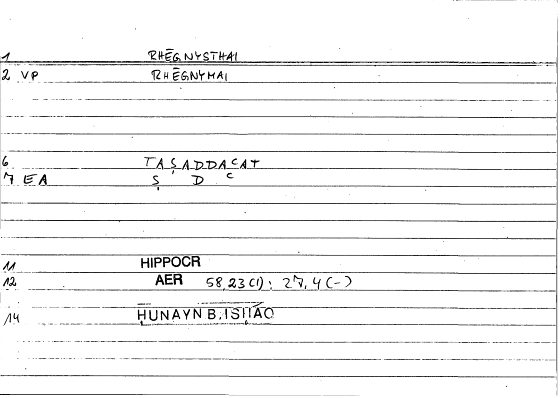 1 RHĒGNYSTHAI
2 VP RHĒGNYMAI
6 TAṢADDACAT
7 EA Ṣ D C
11 HIPPOCR
12 AER 58,23(1); 27,4(-)
14 ḤUNAYN B. ISḤĀQ